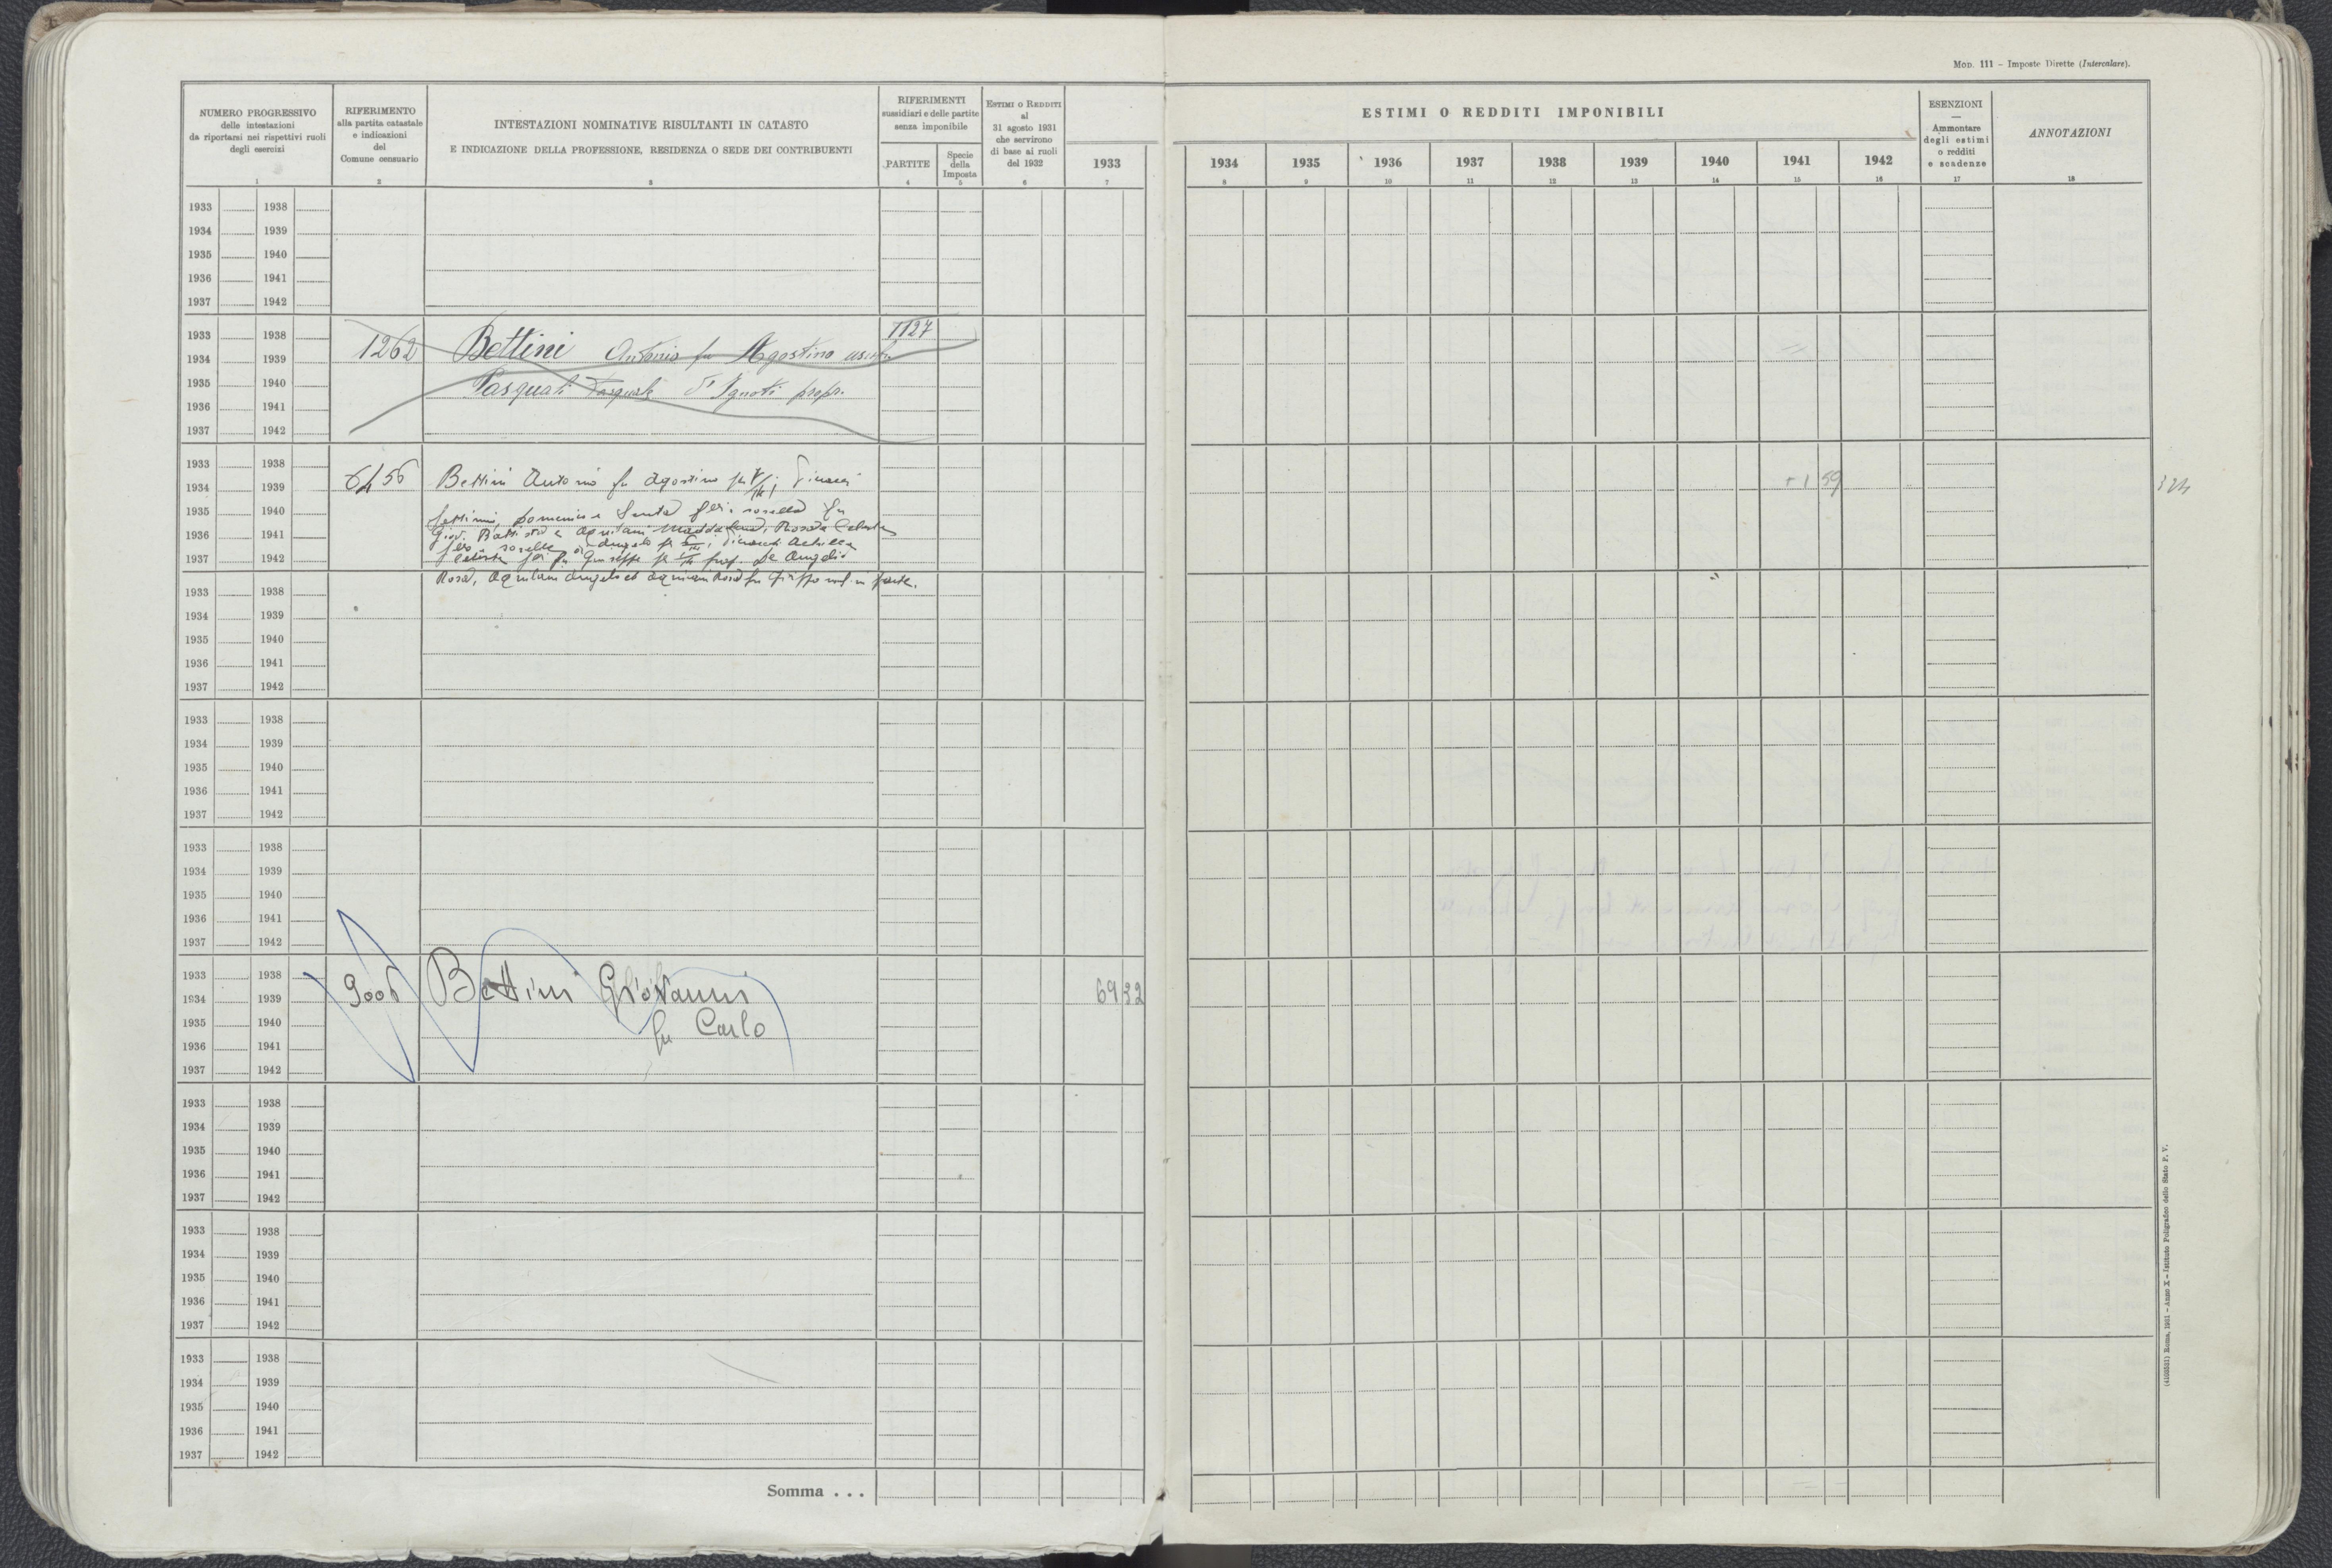 Mod. 111 – Imposte Dirette (Intercalare).
NUMERO PROGRESSIVO
delle intestazioni
da riportarsi nei rispettivi ruoli
degli esercizi
1
RIFERIMENTO
alla partita catastale
e indicazioni
del
Comune censuario
2
INTESTAZIONI NOMINATIVE RISULTANTI IN CATASTO
E INDICAZIONE DELLA PROFESSIONE, RESIDENZA O SEDE DEI CONTRIBUENTI
3
RIFERIMENTI
sussidiari e delle partite
senza imponibile
PARTITE
4
Specie
della
Imposta
5
Estimi o Redditi
al
31 agosto 1931
che servirono
di base ai ruoli
del 1932
6
1933
7
ESTIMI O REDDITI IMPONIBILI
1934 1935 1936 1937 1938 1939 1940 1941 1942
8 9 10 11 12 13 14 15 16
ESENZIONI
—
Ammontare
degli estimi
o redditi
e scadenze
17
ANNOTAZIONI
18
1933 1938
1934 1939
1935 1940
1936 1941
1937 1942
1933 1938 1127
1934 1939 1262 Bettini Antonio fu Agostino
1935 1940 Pasquali Pasquale d'Ignoti propr.
1936 1941
1937 1942
1933 1938
1934 1939 Bettini Antonio fu Agostino +1 59
1935 1940 Domenico e Santa sorella fu
1936 1941 Giov. Battista Aquilani Maddalena, Rosa
1937 1942 fu Giuseppe De Angelis
Rosa, Aquilani Angelo
1933 1938
1934 1939
1935 1940
1936 1941
1937 1942
1933 1938
1934 1939
1935 1940
1936 1941
1937 1942
1933 1938
1934 1939
1935 1940
1936 1941
1937 1942
1933 1938
1934 1939 Bettini Giovanni 69 32
1935 1940 fu Carlo
1936 1941
1937 1942
1933 1938
1934 1939
1935 1940
1936 1941
1937 1942
1933 1938
1934 1939
1935 1940
1936 1941
1937 1942
1933 1938
1934 1939
1935 1940
1936 1941
1937 1942
Somma . . .
(4103551) Roma, 1931 – Anno X – Istituto Poligrafico dello Stato P. V.